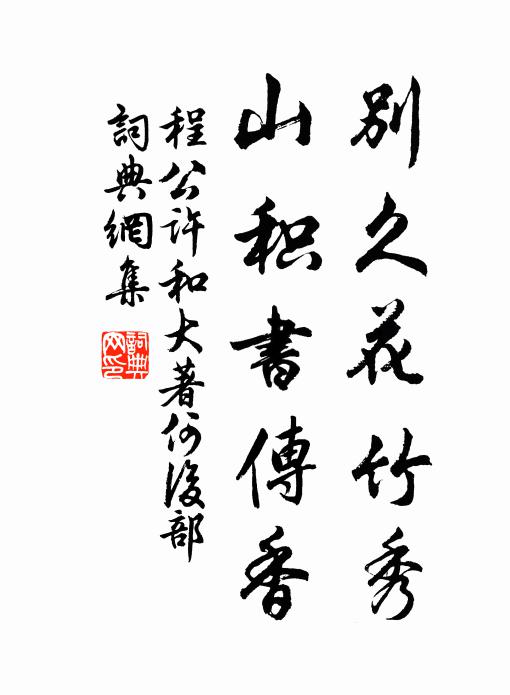 别久花竹秀
山积書傳香
程公许和大著何後部
詞典網集
詞典网印